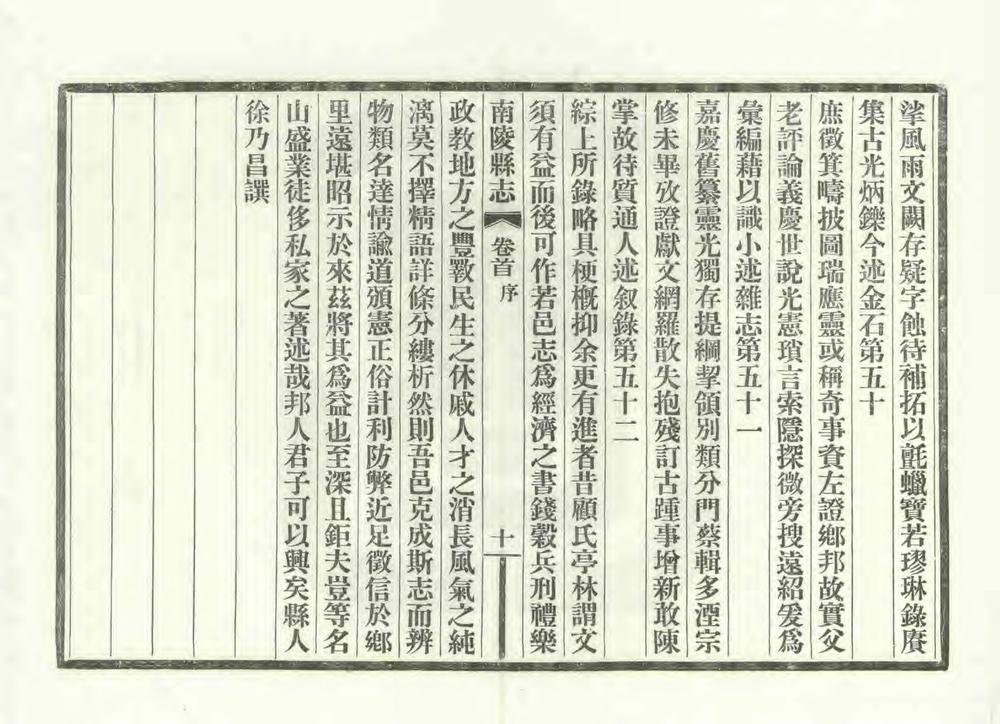 挲風雨文闕存疑字蝕待補拓以氈蠟寶若璆琳錄賡
集古光炳鑠今述金石第五十
庶徵箕疇披圖瑞應靈或稱奇事資左證鄉邦故實父
老評論義慶世說光憲瑣言索隱探微旁搜遠紹爰爲
彙編藉以識小述雜志第五十一
嘉慶舊纂靈光獨存提綱挈領別類分門蔡輯多湮宗
修未畢攷證獻文網羅散失抱殘訂古踵事增新敢陳
掌故待質通人述叙錄第五十二
綜上所錄略具梗槪抑余更有進者昔顧氏亭林謂文
須有益而後可作若邑志爲經濟之書錢穀兵刑禮樂
南陵縣志 卷首 序 十
政教地方之豐斁民生之休戚人才之消長風氣之純
漓莫不擇精語詳條分縷析然則吾邑克成斯志而辨
物類名達情諭道頒憲正俗計利防弊近足徵信於鄉
里遠堪昭示於來茲將其爲益也至深且鉅夫豈等名
山盛業徒侈私家之著述哉邦人君子可以興矣縣人
徐乃昌譔